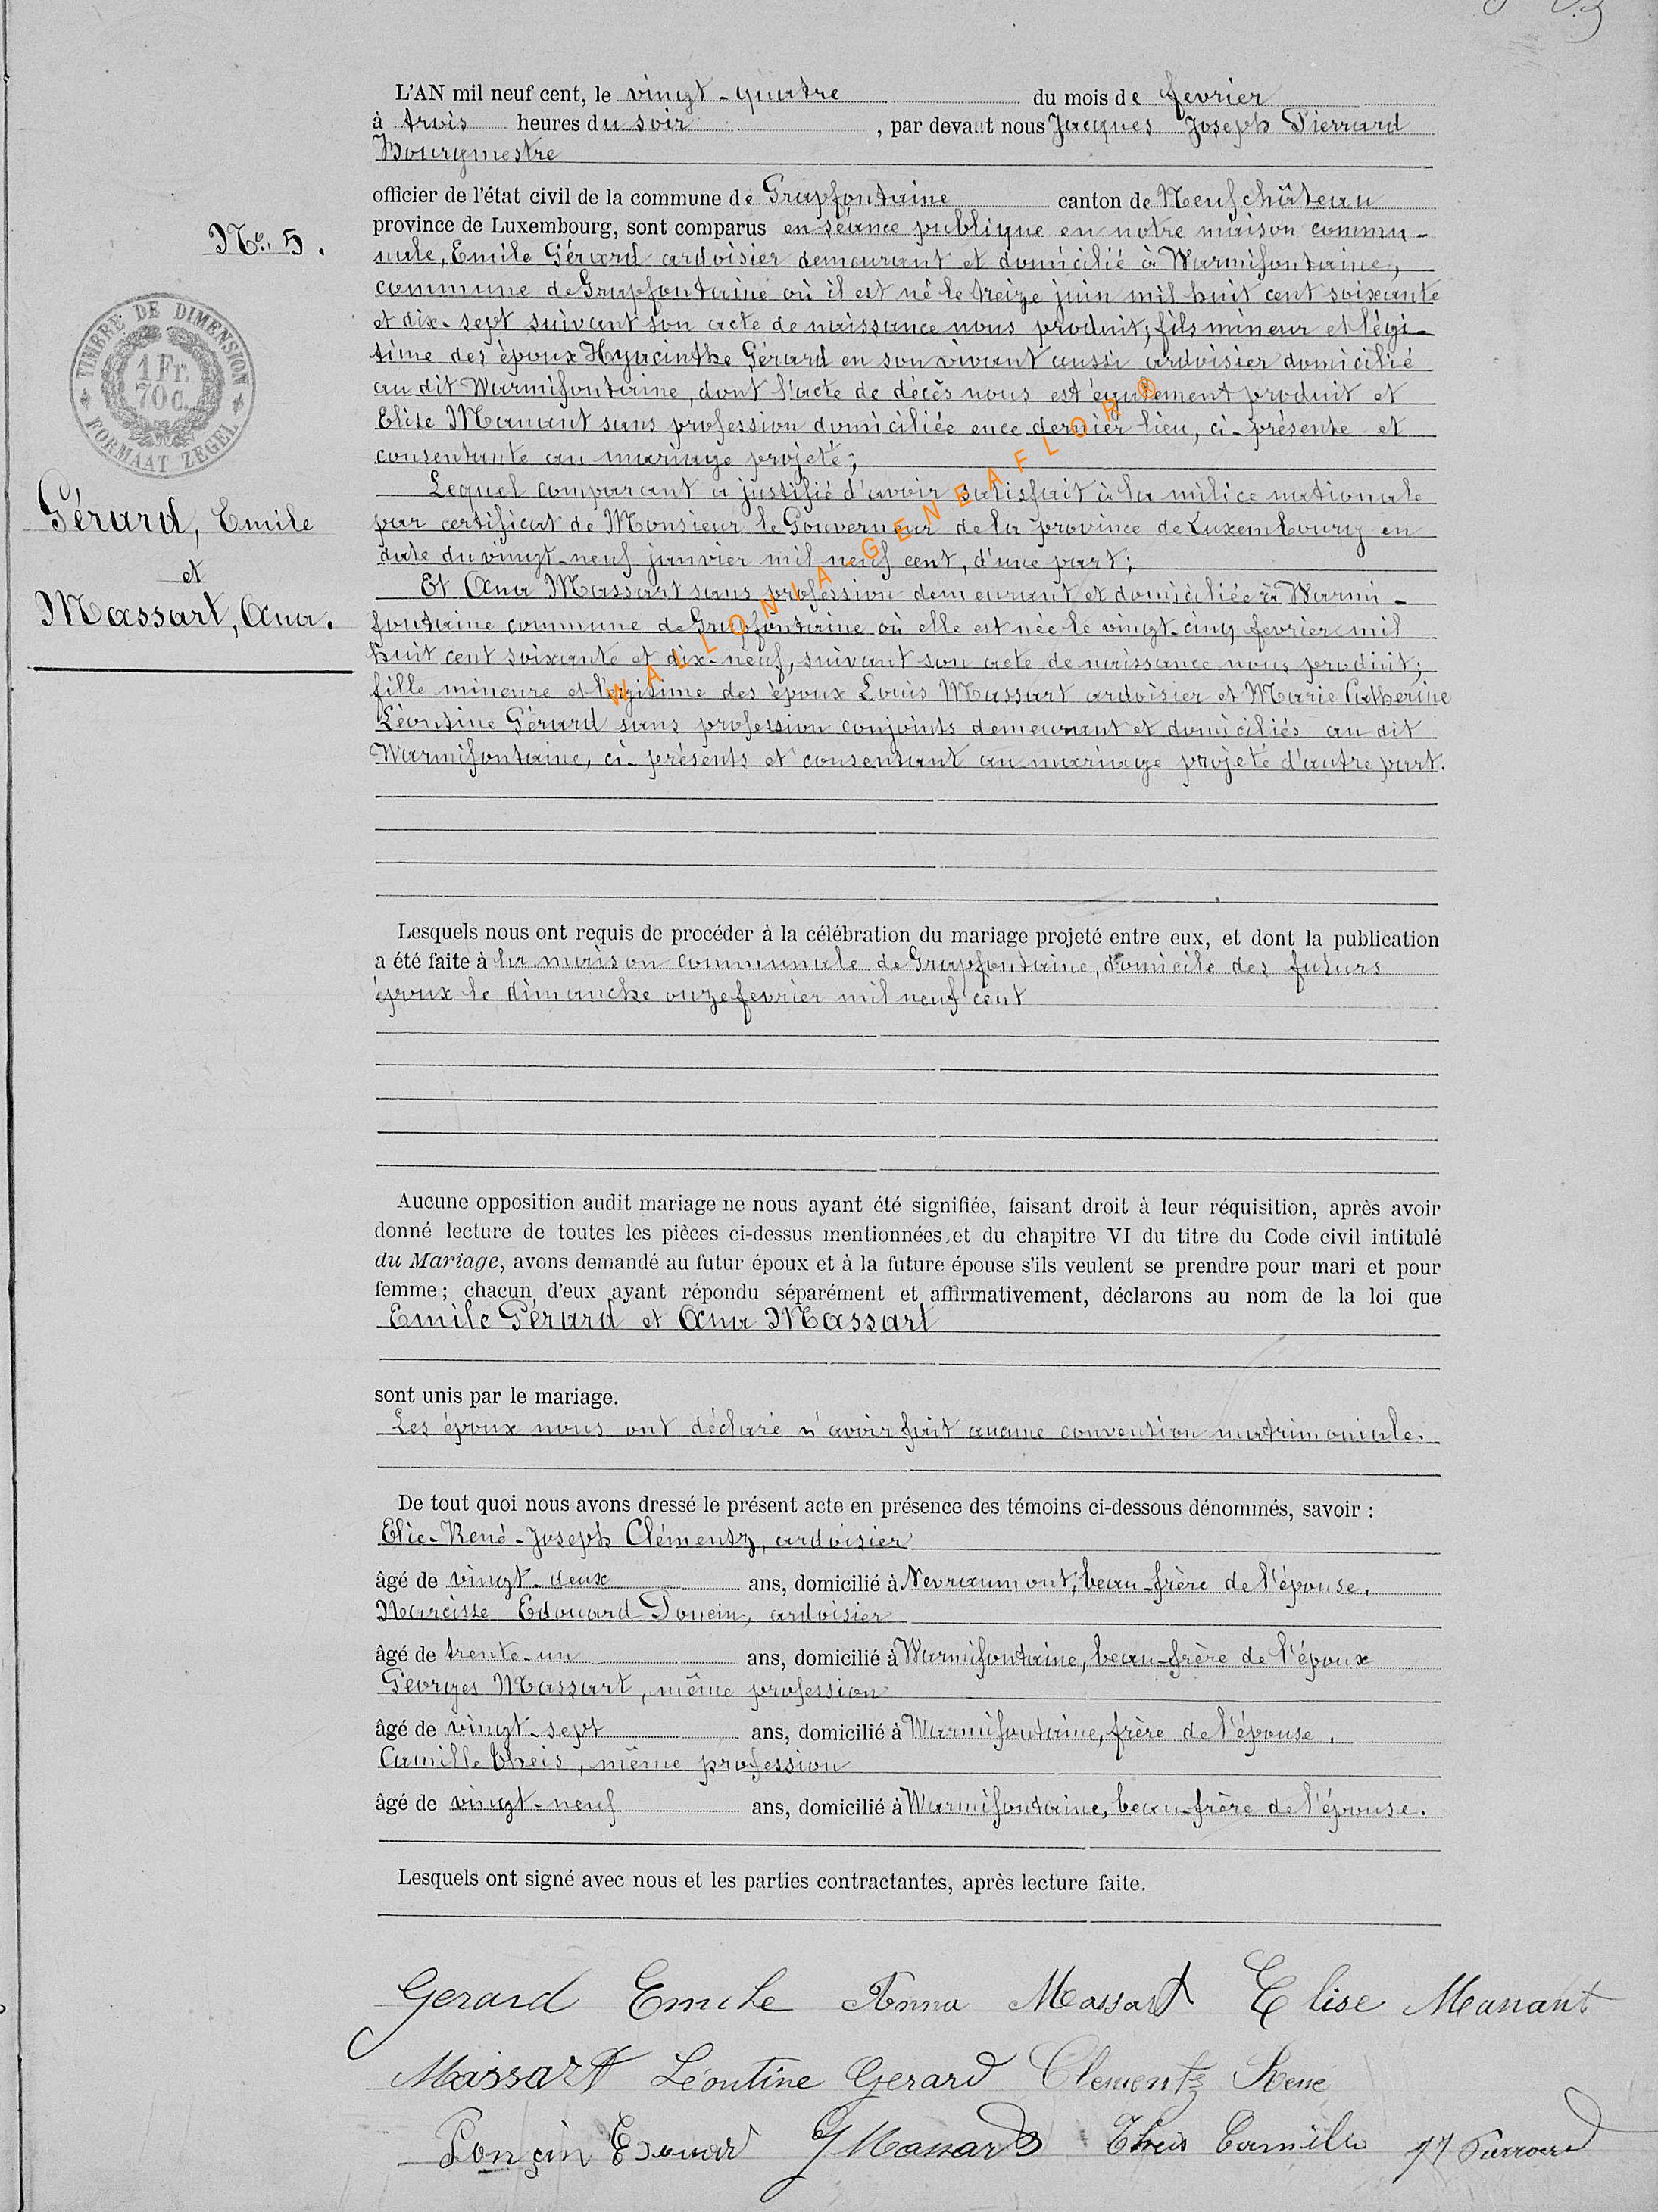 L'AN mil neuf cent, le vingt-quatre du mois de fevrier
à trois heures du soir, par devant nous Jacques Joseph Pierrard
Bourgmestre
officier de l'état civil de la commune de Grapfontaine canton de Neufchâteau
province de Luxembourg, sont comparus en séance publique en notre maison commu-
nale, Emile Gérard ardoisier demeurant et domicilié à Warmifontaine,
commune de Grapfontaine où il est né le treize juin mil huit cent soixante
et dix-sept suivant son acte de naissance nous produit, fils mineur et légi-
time des époux Hyacinthe Gérard en son vivant aussi ardoisier domicilié
au dit Warmifontaine, dont l'acte de décès nous est également produit et
Elise Manant sans profession domiciliée en ce dernier lieu, ci-présente et
consentante au mariage projeté;
Lequel comparant a justifié d'avoir satisfait à la milice nationale
par certificat de Monsieur le Gouverneur de la province de Luxembourg en
date du vingt-neuf janvier mil neuf cent, d'une part;
Et Ana Massart sans profession demeurant et domiciliée à Warmi-
fontaine commune de Grapfontaine où elle est née le vingt-cinq fevrier mil
huit cent soixante et dix-neuf, suivant son acte de naissance nous produit;
fille mineure et légitime des époux Louis Massart ardoisier et Marie Catherine
Léontine Gérard sans profession conjoints demeurant et domiciliés au dit
Warmifontaine, ci-présents et consentant au mariage projeté d'autre part.
WALLONIA-GENEAFLOR®
No. 5.
TIMBRE DE DIMENSION
1 Fr.
70 C.
FORMAAT ZEGEL
Gérard, Emile
et
Massart, Ana.
Lesquels nous ont requis de procéder à la célébration du mariage projeté entre eux, et dont la publication
a été faite à la maison communale de Grapfontaine, domicile des futurs
époux le dimanche onze fevrier mil neuf cent
Aucune opposition audit mariage ne nous ayant été signifiée, faisant droit à leur réquisition, après avoir
donné lecture de toutes les pièces ci-dessus mentionnées, et du chapitre VI du titre du Code civil intitulé
du Mariage, avons demandé au futur époux et à la future épouse s'ils veulent se prendre pour mari et pour
femme; chacun d'eux ayant répondu séparément et affirmativement, déclarons au nom de la loi que
Emile Gérard et Ana Massart
sont unis par le mariage.
Les époux nous ont déclaré n'avoir fait aucune convention matrimoniale.
De tout quoi nous avons dressé le présent acte en présence des témoins ci-dessous dénommés, savoir :
Elie-René-Joseph Clémentz, ardoisier
âgé de vingt-deux ans, domicilié à Nevraumont, beau-frère de l'épouse.
Narcisse Edouard Poncin, ardoisier
âgé de trente-un ans, domicilié à Warmifontaine, beau-frère de l'époux
Georges Massart, même profession
âgé de vingt-sept ans, domicilié à Warmifontaine, frère de l'épouse.
Camille Theis, même profession
âgé de vingt-neuf ans, domicilié à Warmifontaine, beau-frère de l'épouse.
Lesquels ont signé avec nous et les parties contractantes, après lecture faite.
Gerard Emile Anna Massart Elise Manant
Massart Léontine Gerard Clementz Rene
Ponçin Edouard G Massard Theis Camille JJ Pierrard